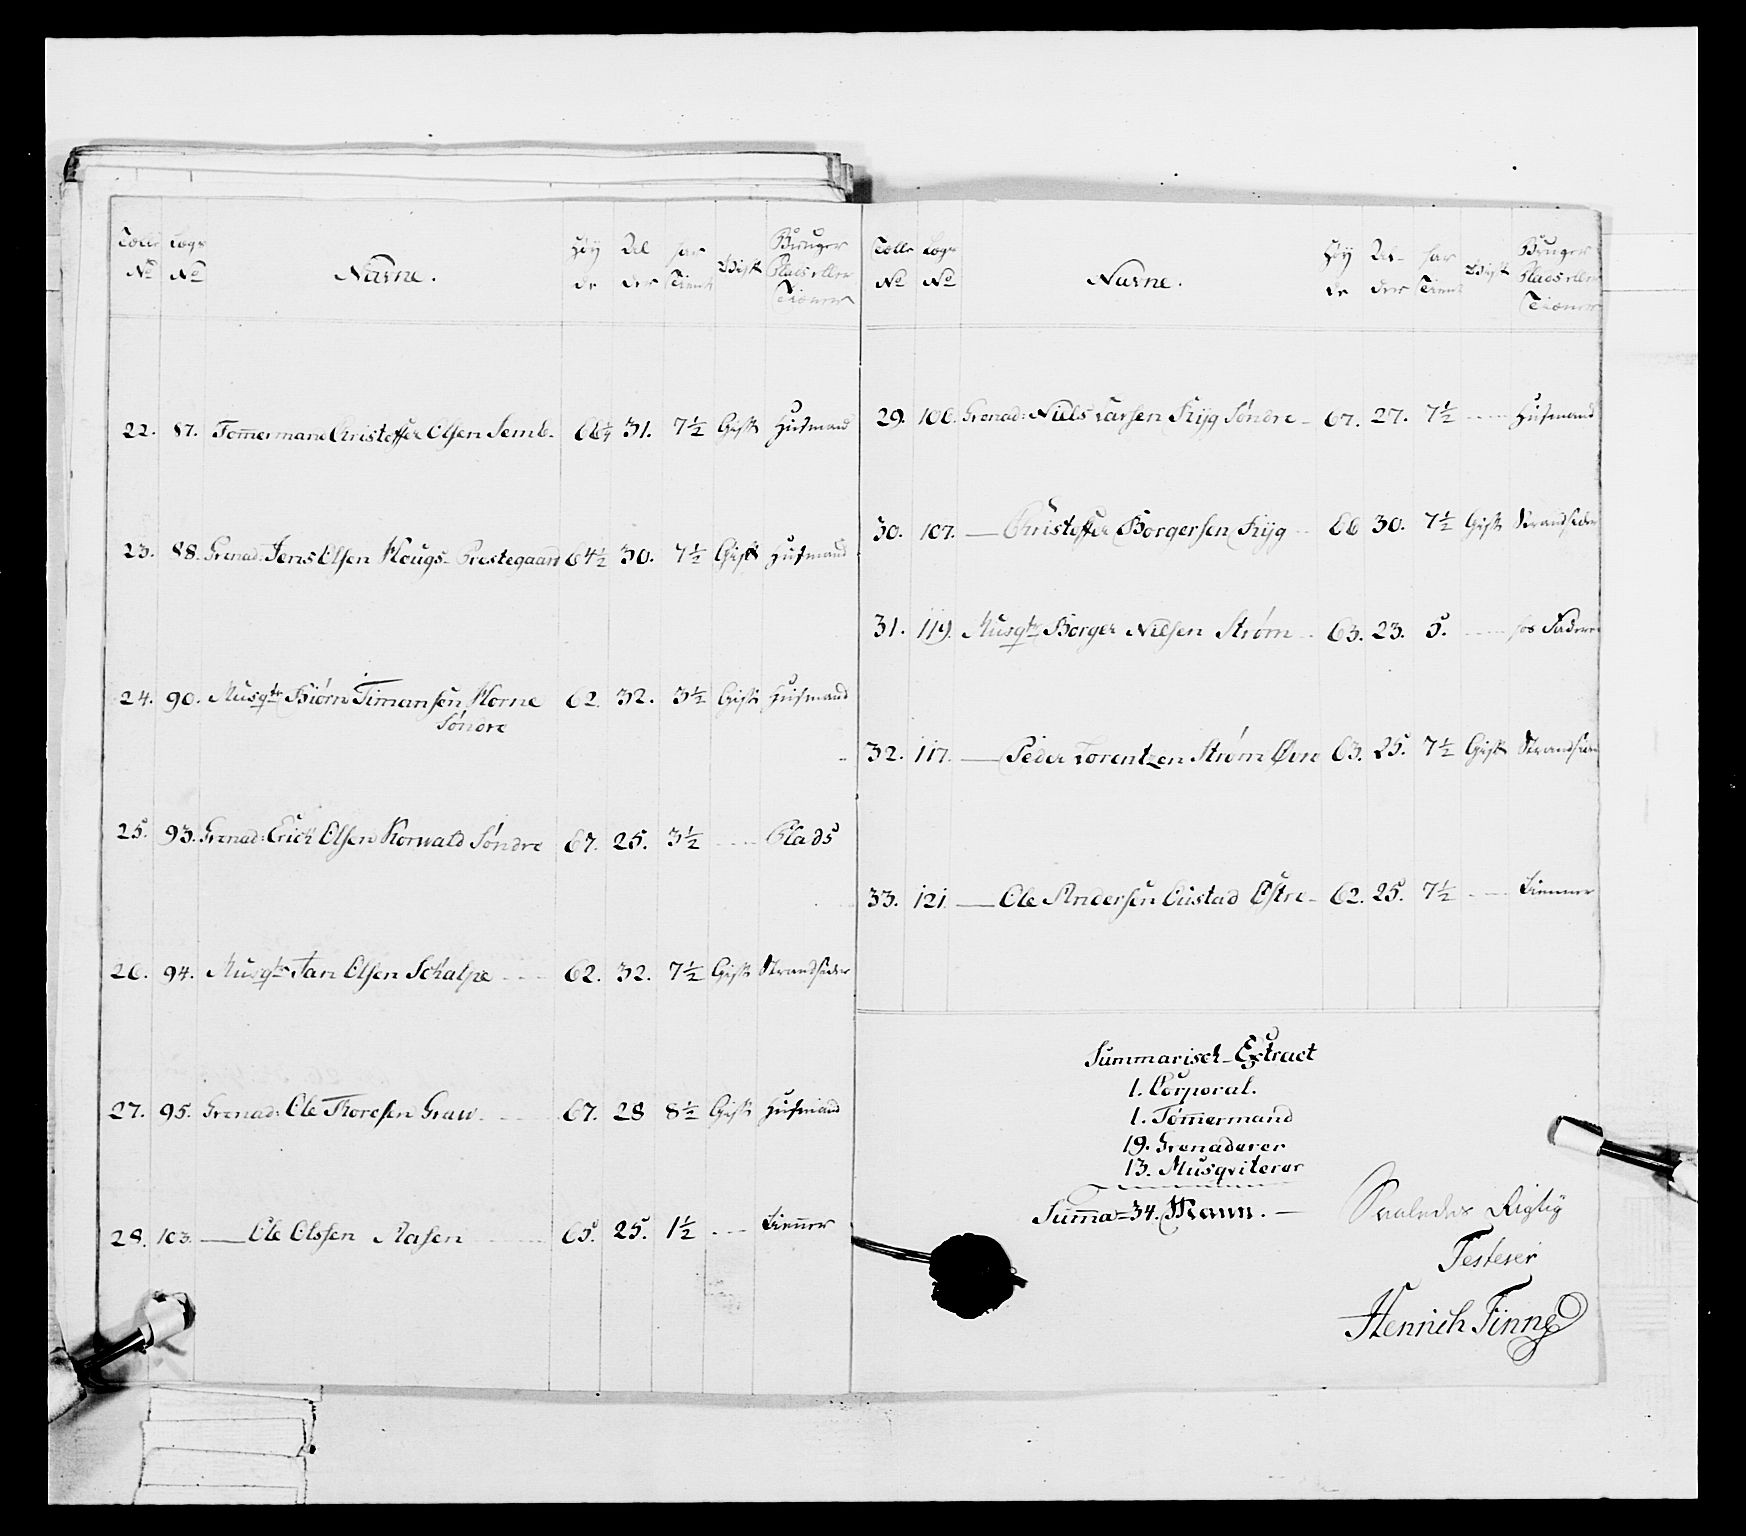 Tælle Lægs Navne. Høy Al har Gift Bruger
No No de der Tient Plads eller
Tiener
22. 87. Tom̄ermand Christoffer Olsen Semb. 66½ 31. 7½ Gift Huusmand
23. 88. Grenad: Jens Olsen Hougs Prestegaard 64½ 30. 7½ Gift Huusmand
24. 90. Musqtr Biørn Timansen Horne 62. 32. 3½ Gift Huusmand
Søndre
25. 93. Grenad: Erich Olsen Korvald Søndre 67. 25. 3½ Plads
26. 94. Musqtr Jan Olsen Schalpe 62. 32. 7½ Gift Strandsidder
27. 95. Grenad: Ole Thoresen Grau 67. 28 8½ Gift Huusmand
28. 103. — Ole Olssen Aasen 65. 25. 1½ Tien̄er
Tælle Lægs Navne. Høy Al- har Gift Bruger
No No de der Tient Plads eller
Tiener
29. 106. Grenad: Niels Larsen Kijg Søndre 67. 27. 7½ Huusmand
30. 107. — Christoffer Borgersen Kijg 66 30. 7½ Gift Strandsidder
31. 119. Musqtr Borger Nilsen Strøm 63. 23. 5. hos Faderen
32. 117. — Peder Lorentzen Strøm Øvre 63. 25. 7½ Gift Strandsidder
33. 121. — Ole Andersen Oustad Østre 62. 25. 7½ Tienner
Summarisch-Extract
1. Corporal.
1. Tøm̄ermand
19. Grenaderer
13. Musqviterer
Sum̄a=34. Mann.
Saaledes Rigtig
Testerer
Henrich Finne